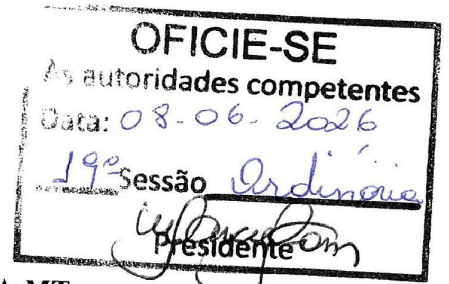 OFICIE-SE
As autoridades competentes
Data: 08-06-2026
19ª Sessão Ordinária
Presidente
A-MT